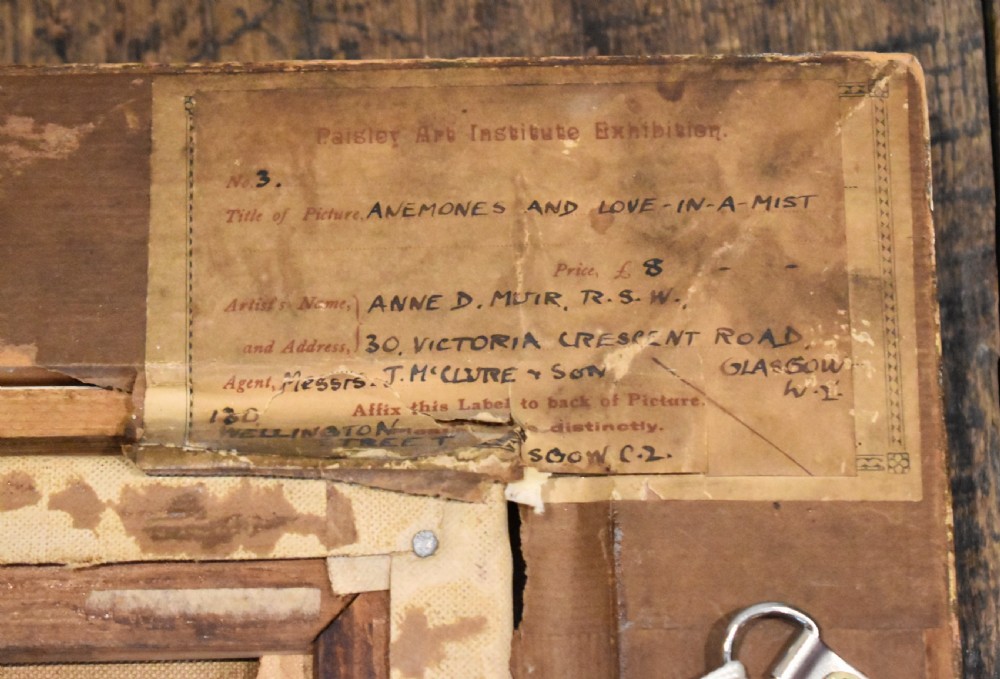 Paisley Art Institute Exhibition.
No. 3.
Title of Picture, ANEMONES AND LOVE-IN-A-MIST
Price, £ 8 - -
Artist's Name, ANNE D. MUIR, R.S.W.,
and Address, 30, VICTORIA CRESCENT ROAD,
GLASGOW
Agent, Messrs. J. McCLURE & SON
W.
Affix this Label to back of Picture.
130
WELLINGTON distinctly.
STREET SGOW C.2.